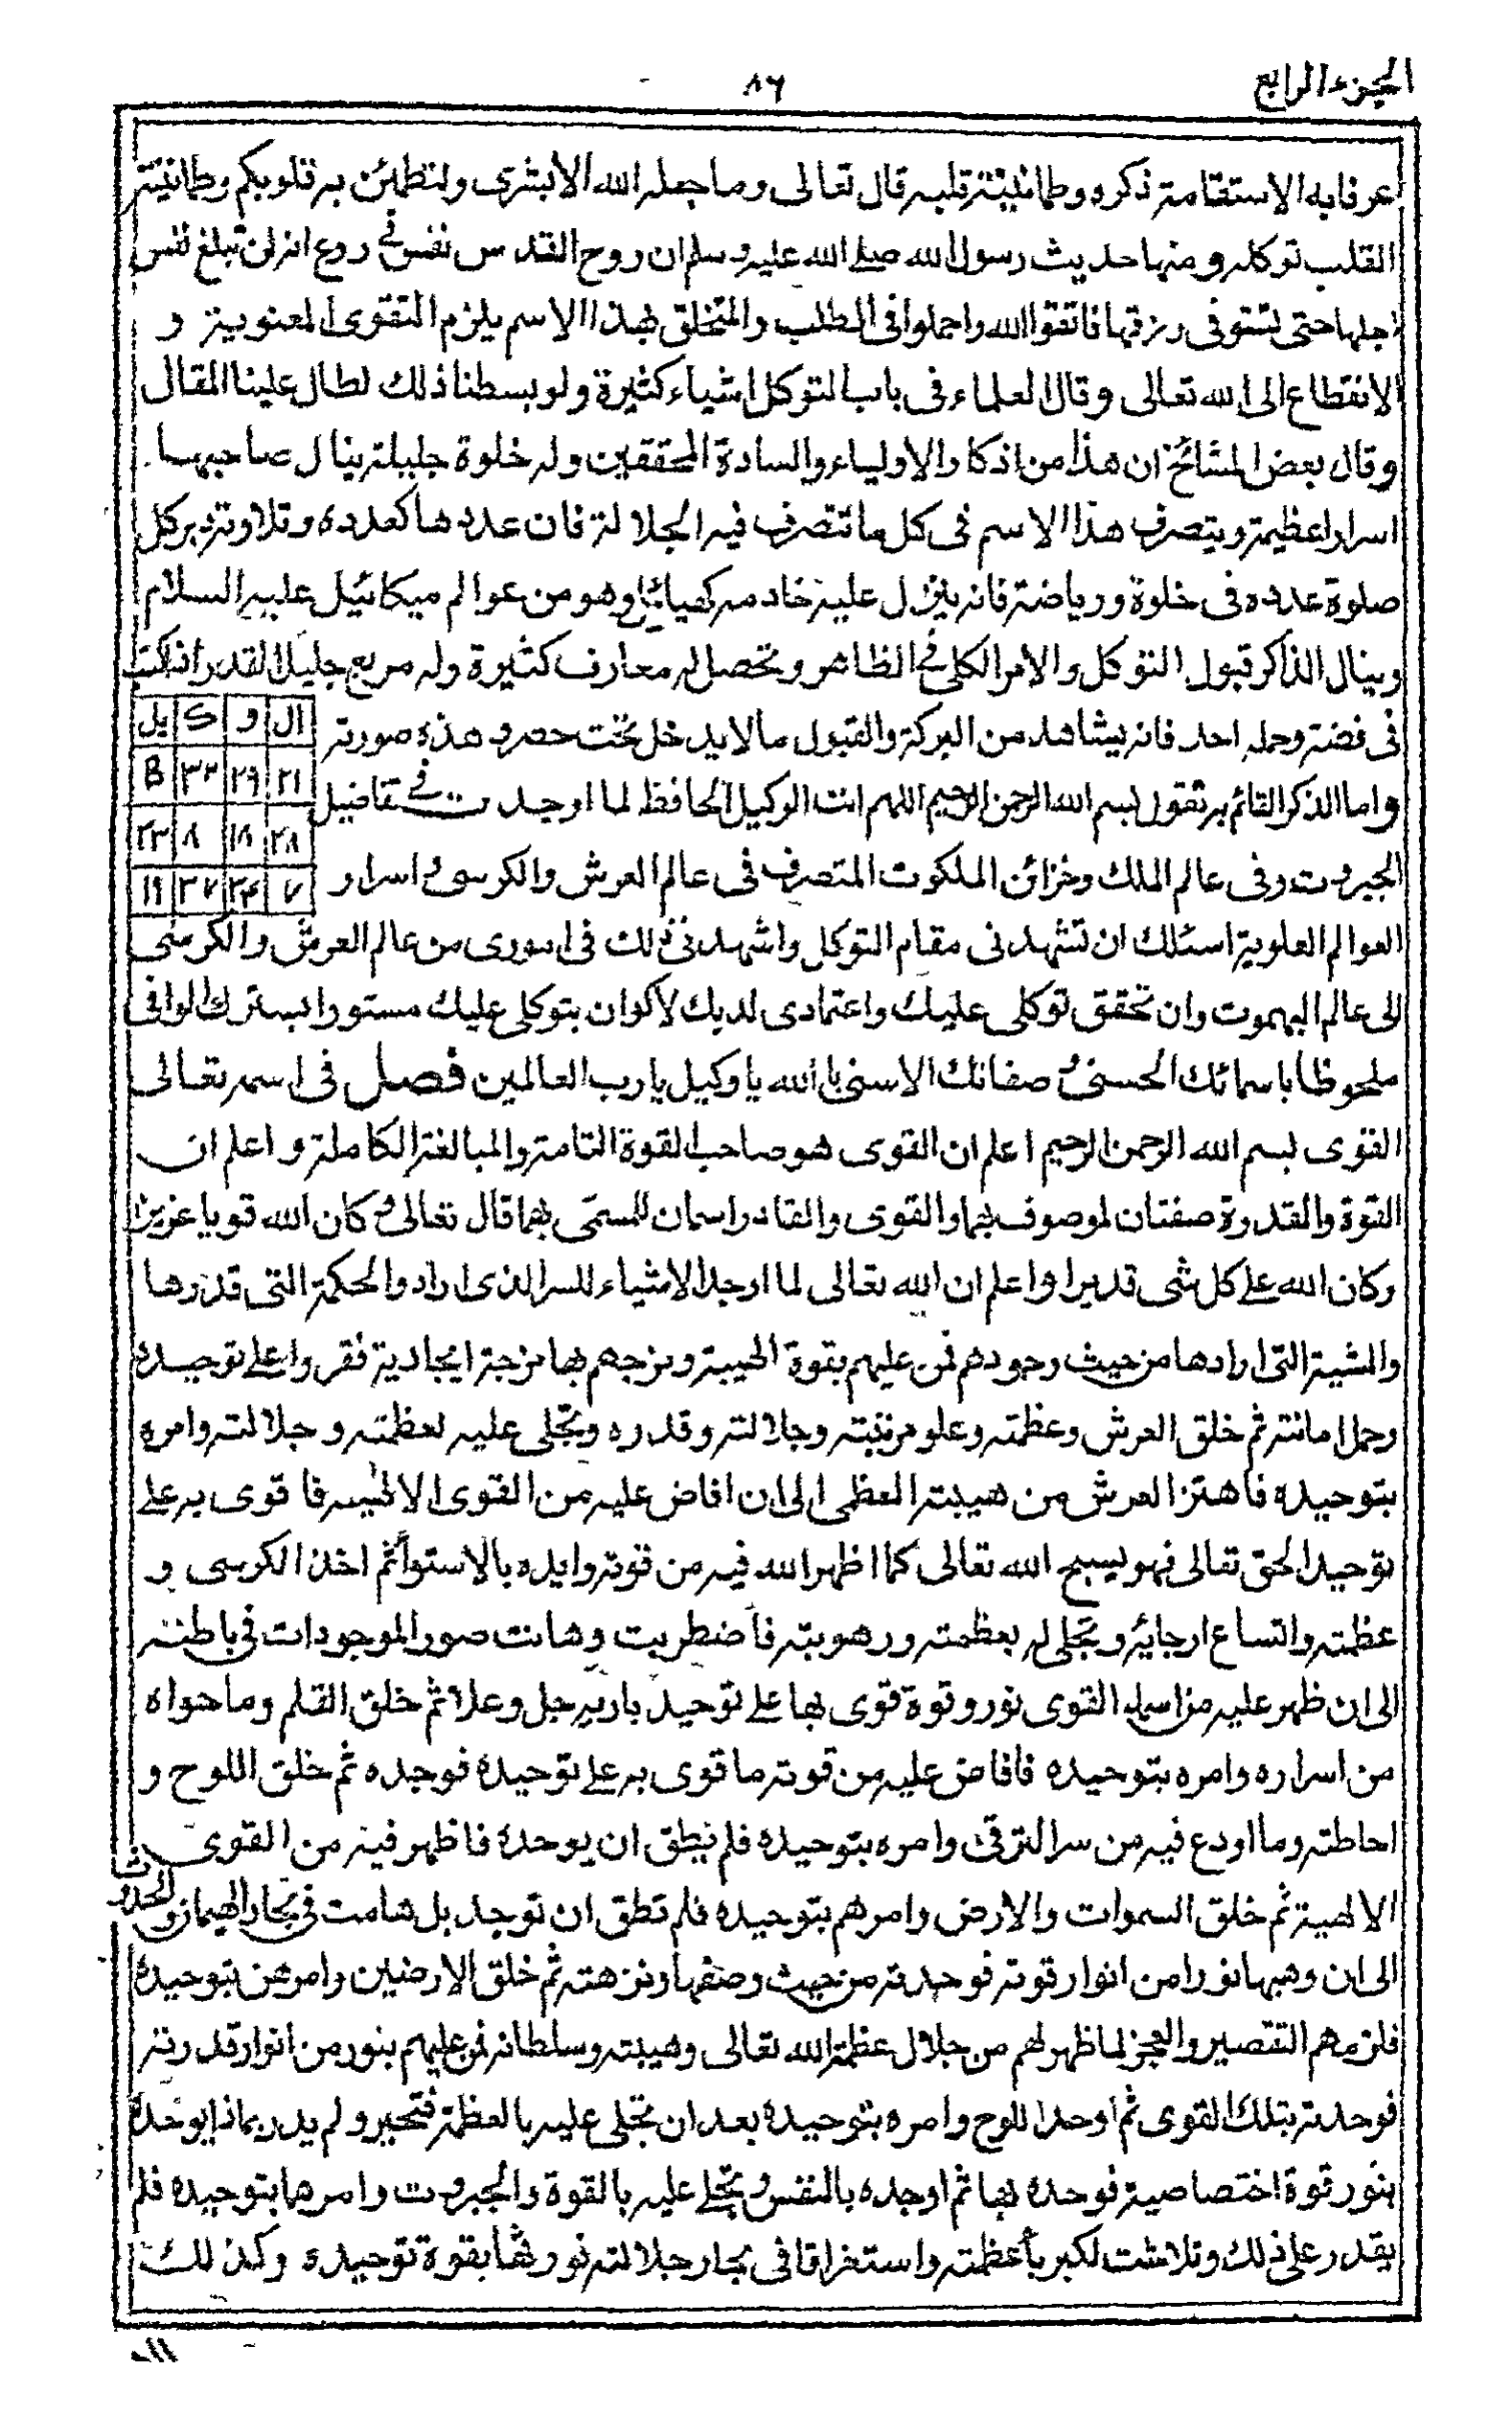 الجزء الرابع
٨٦
عرفا به الاستقامة ذكره وطمانينة قلبه قال تعالى وما جعله الله الا بشرى ولتطمئن به قلوبكم وطمانينة
القلب توكله ومنها حديث رسول الله صلے الله عليه وسلم ان روح القدس نفس فى روع انه لن تبلغ نفس
اجلها حتى تستوفى رزقها فاتقوا الله واجملوا فى الطلب والمتخلق بهذا الاسم يلزم التقوى المعنوية و
الانقطاع الى الله تعالى وقال العلماء فى باب التوكل اشياء كثيرة ولو بسطنا ذلك لطال علينا المقال
وقال بعض المشائخ ان هذا من اذكار الاولياء والسادة المحققين وله خلوة جليلة ينال صاحبها
اسرارا عظيمة ويتصرف هذا الاسم فى كل ما تتصرف فيه الجلالة فان عددها كعدده وتلاوته دبر كل
صلوة عدده فى خلوة ورياضة فانه ينزل عليه خادمه كهيائيل وهو من عوالم ميكائيل عليه السلام
وينال الذاكر قبول التوكل والامر الكلى فى الظاهر وتحصل له معارف كثيرة وله مربع جليل القدر اذا كتب
فى فضة وحمله احد فانه يشاهد من البركة والقبول مالا يدخل تحت حصر وهذه صورته
ال و ك يل
٢١ ٢٩ ٣٢
٢٨ ١٨ ٨ ٢٣
٧ ٢٤ ٣٧ ١٩
واما الذكر القائم به تقول بسم الله الرحمن الرحيم اللهم انت الوكيل الحافظ لما اوجدت فى تفاضيل
الجبروت وفى عالم الملك وخزائن الملكوت المتصرف فى عالم العرش والكرسى واسرار
العوالم العلوية اسئلك ان تشهدنى مقام التوكل واشهدنى ذلك فى امورى من عالم العرش والكرسى
الى عالم البهموت وان تحقق توكلى عليك واعتمادى لديك لاكوان بتوكلى عليك مستورا بسترك الوافى
ملحوظا باسمائك الحسنى و صفاتك الاسنى يا الله يا وكيل يا رب العالمين فصل فى اسمه تعالى
القوى بسم الله الرحمن الرحيم اعلم ان القوى هو صاحب القوة التامة والمبالغة الكاملة واعلم ان
القوة والقدرة صفتان لموصوف بهما والقوى والقادر اسمان للمسمى بهما قال تعالى و كان الله قويا عزيزا
وكان الله على كل شى قديرا واعلم ان الله تعالى لما اوجد الاشياء للسر الذى اراد والحكمة التى قدرها
والمشية التى ارادها من حيث وجودهم فمن عليهم بقوة الهيبة ومزجهم بها مزجة ايجادية فقروا على توحيده
وحمل امانته ثم خلق العرش وعظمته وعلو مرتبته وجلالته وقدره وتجلى عليه لعظمته وجلالته وامره
بتوحيده فاهتز العرش من هيبته العظمى الى ان افاض عليه من القوى الالهيه فاقوى به على
توحيد الحق تعالى فهو يسبح الله تعالى كما اظهر الله فيه من قوته وايده بالاستواء ثم اخذ الكرسى و
عظمته واتساع ارجائه وتجلى له بعظمته ورهوبته فاضطربت وهانت صور الموجودات فى باطنه
الى ان ظهر عليه من اسمه القوى نور وقوة قوى بها على توحيد باريه جل وعلا ثم خلق القلم وما حواه
من اسراره وامره بتوحيده فافاض عليه من قوته ما قوى به على توحيده فوجده ثم خلق اللوح و
احاطته وما اودع فيه من سر الترقى وامره بتوحيده فلم يطق ان يوحده فاظهر فيه من القوى
الالهية ثم خلق السموات والارض وامرهم بتوحيده فلم تطق ان توجد بل هامت فى بحار الهيمان والحدوث
الى ان وهبها نورا من انوار قوته فوحدته من حيث وصفها ونزهته ثم خلق الارضين وامرهن بتوحيده
فلزمهم التقصير والعجز لما ظهر لهم من جلال عظمة الله تعالى وهيبته وسلطانه فمن عليهم بنور من انوار قدرته
فوحدته بتلك القوى ثم اوحد اللوح وامره بتوحيده بعد ان تجلى عليه بالعظمة فتحير ولم يدر بماذا يوحده
بنور قوة اختصاصية فوحده بها ثم اوجده بالنفس وتجلى عليه بالقوة والجبروت وامرها بتوحيده فلم
يقدر على ذلك وتلاشت لكبرياء عظمته واستغراقا فى بحار جلالته نورها بقوة توحيده وكذلك